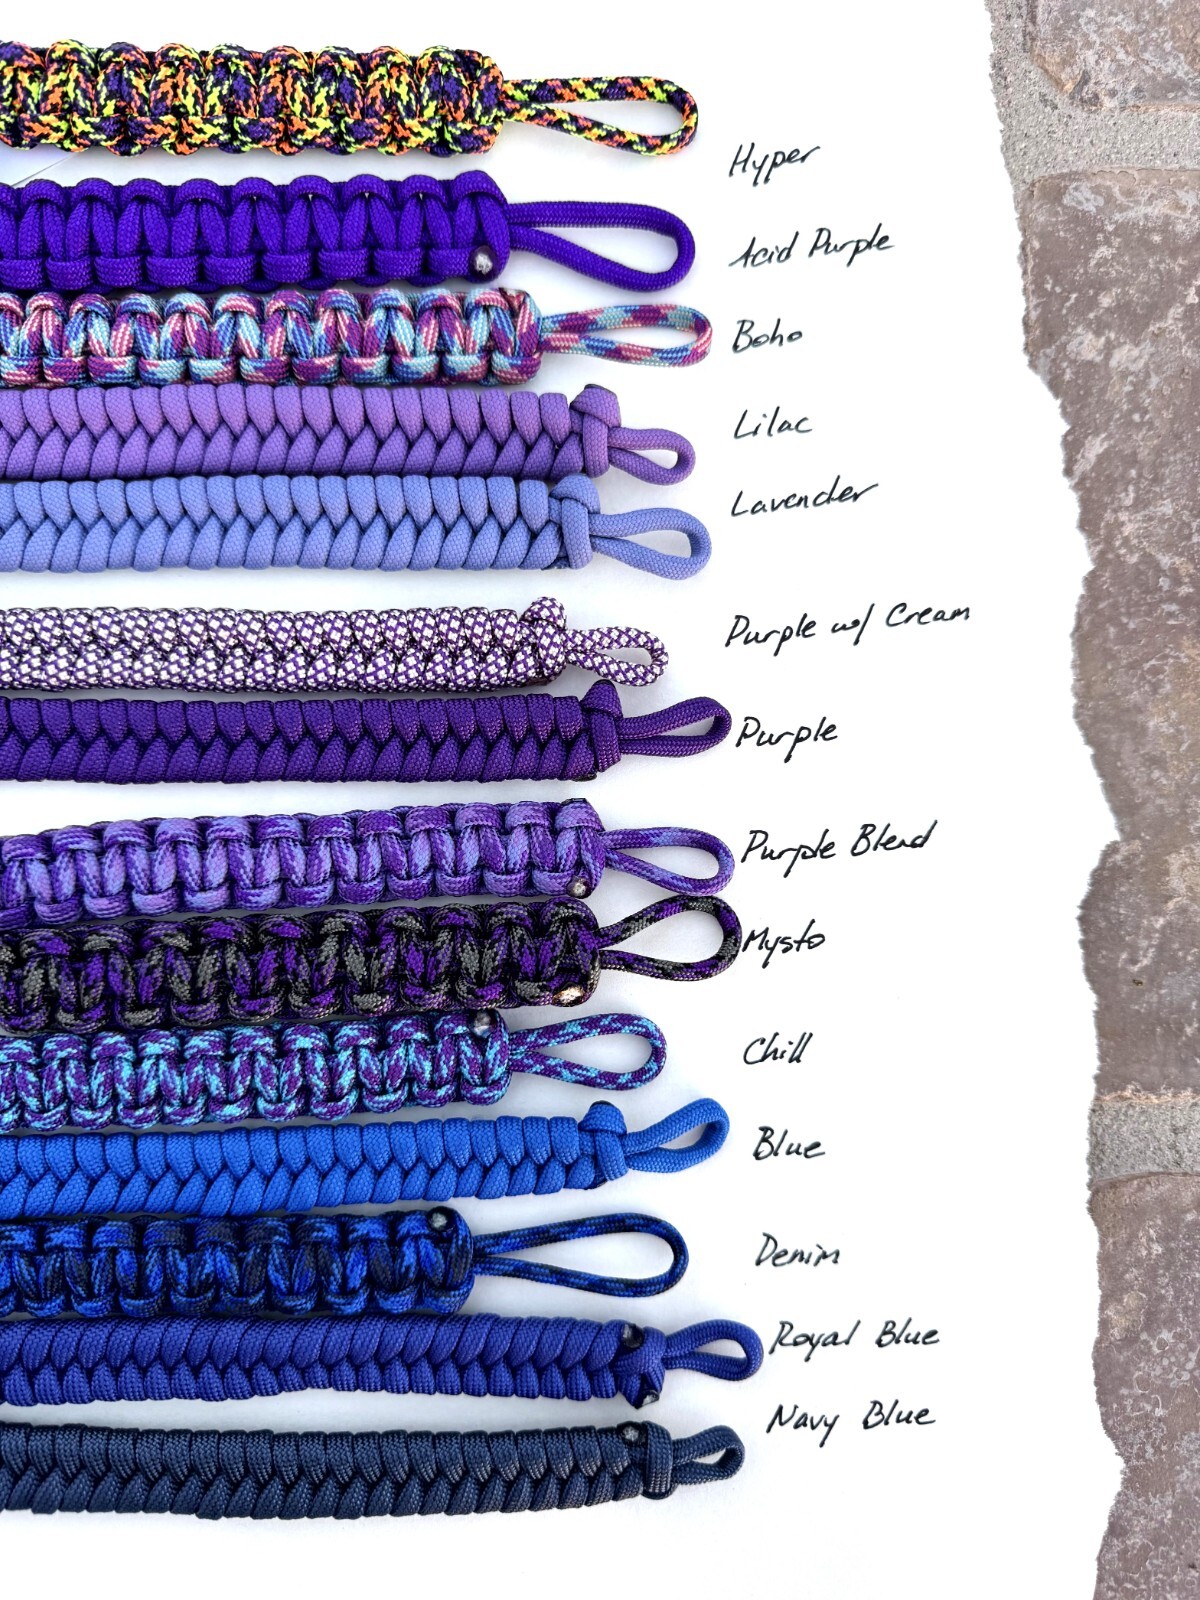 Hyper
Acid Purple
Boho
Lilac
Lavender
Purple w/ Cream
Purple
Purple Blend
Mysto
Chill
Blue
Denim
Royal Blue
Navy Blue